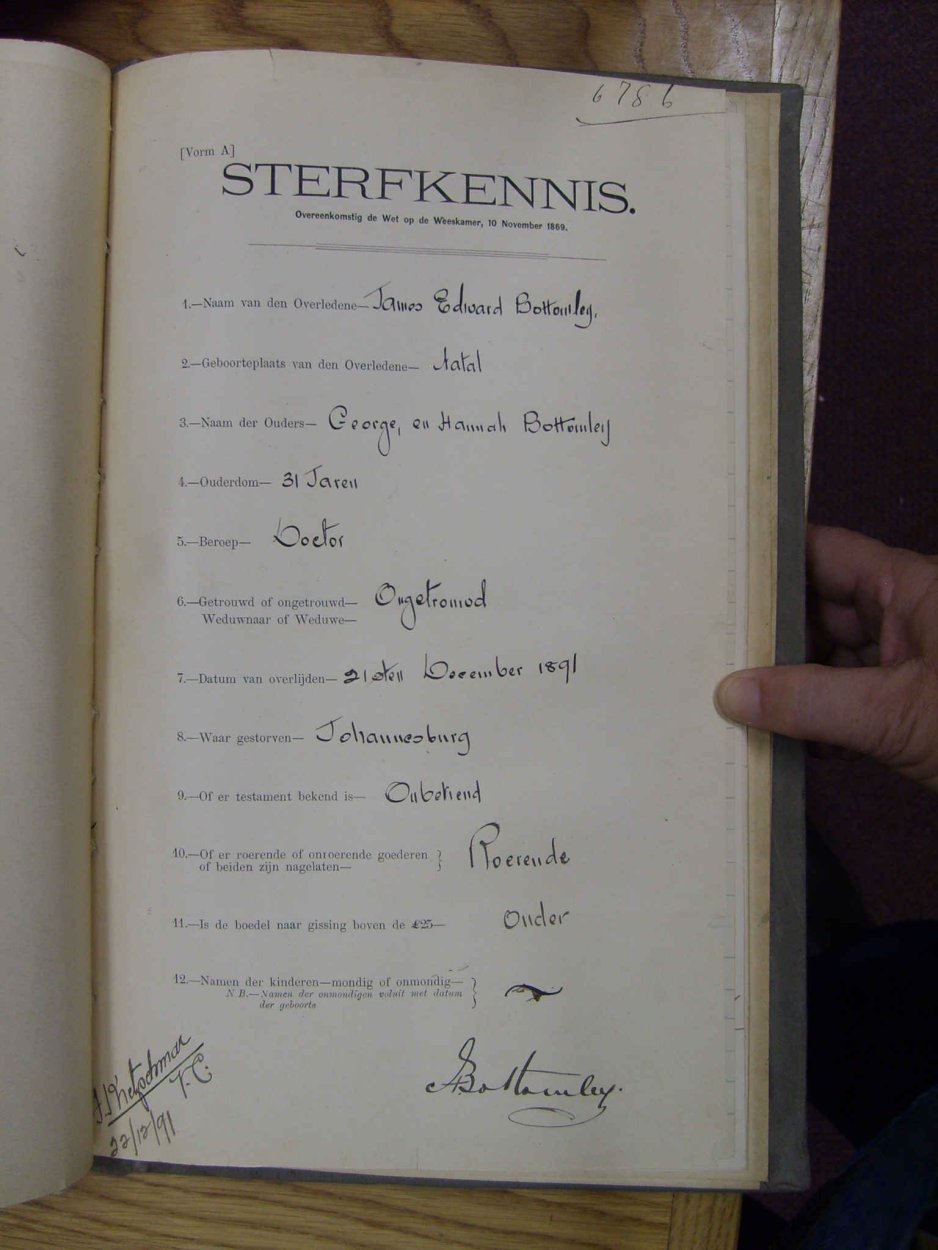 6786
[Vorm A]
STERFKENNIS.
Overeenkomstig de Wet op de Weeskamer, 10 November 1869.
1.—Naam van den Overledene— James Edward Bottomley,
2.—Geboorteplaats van den Overledene— Natal
3.—Naam der Ouders— George, en Hannah Bottomley
4.—Ouderdom— 31 Jaren
5.—Beroep— Doctor
6.—Getrouwd of ongetrouwd— Ongetrouwd
Weduwnaar of Weduwe—
7.—Datum van overlijden— 21sten December 1891
8.—Waar gestorven— Johannesburg
9.—Of er testament bekend is— Onbekend
10.—Of er roerende of onroerende goederen
of beiden zijn nagelaten— Roerende
11.—Is de boedel naar gissing boven de £25— Onder
12.—Namen der kinderen—mondig of onmondig—
N B.—Namen der onmondigen voluit met datum
der geboorte
Bottomley.
22/12/91